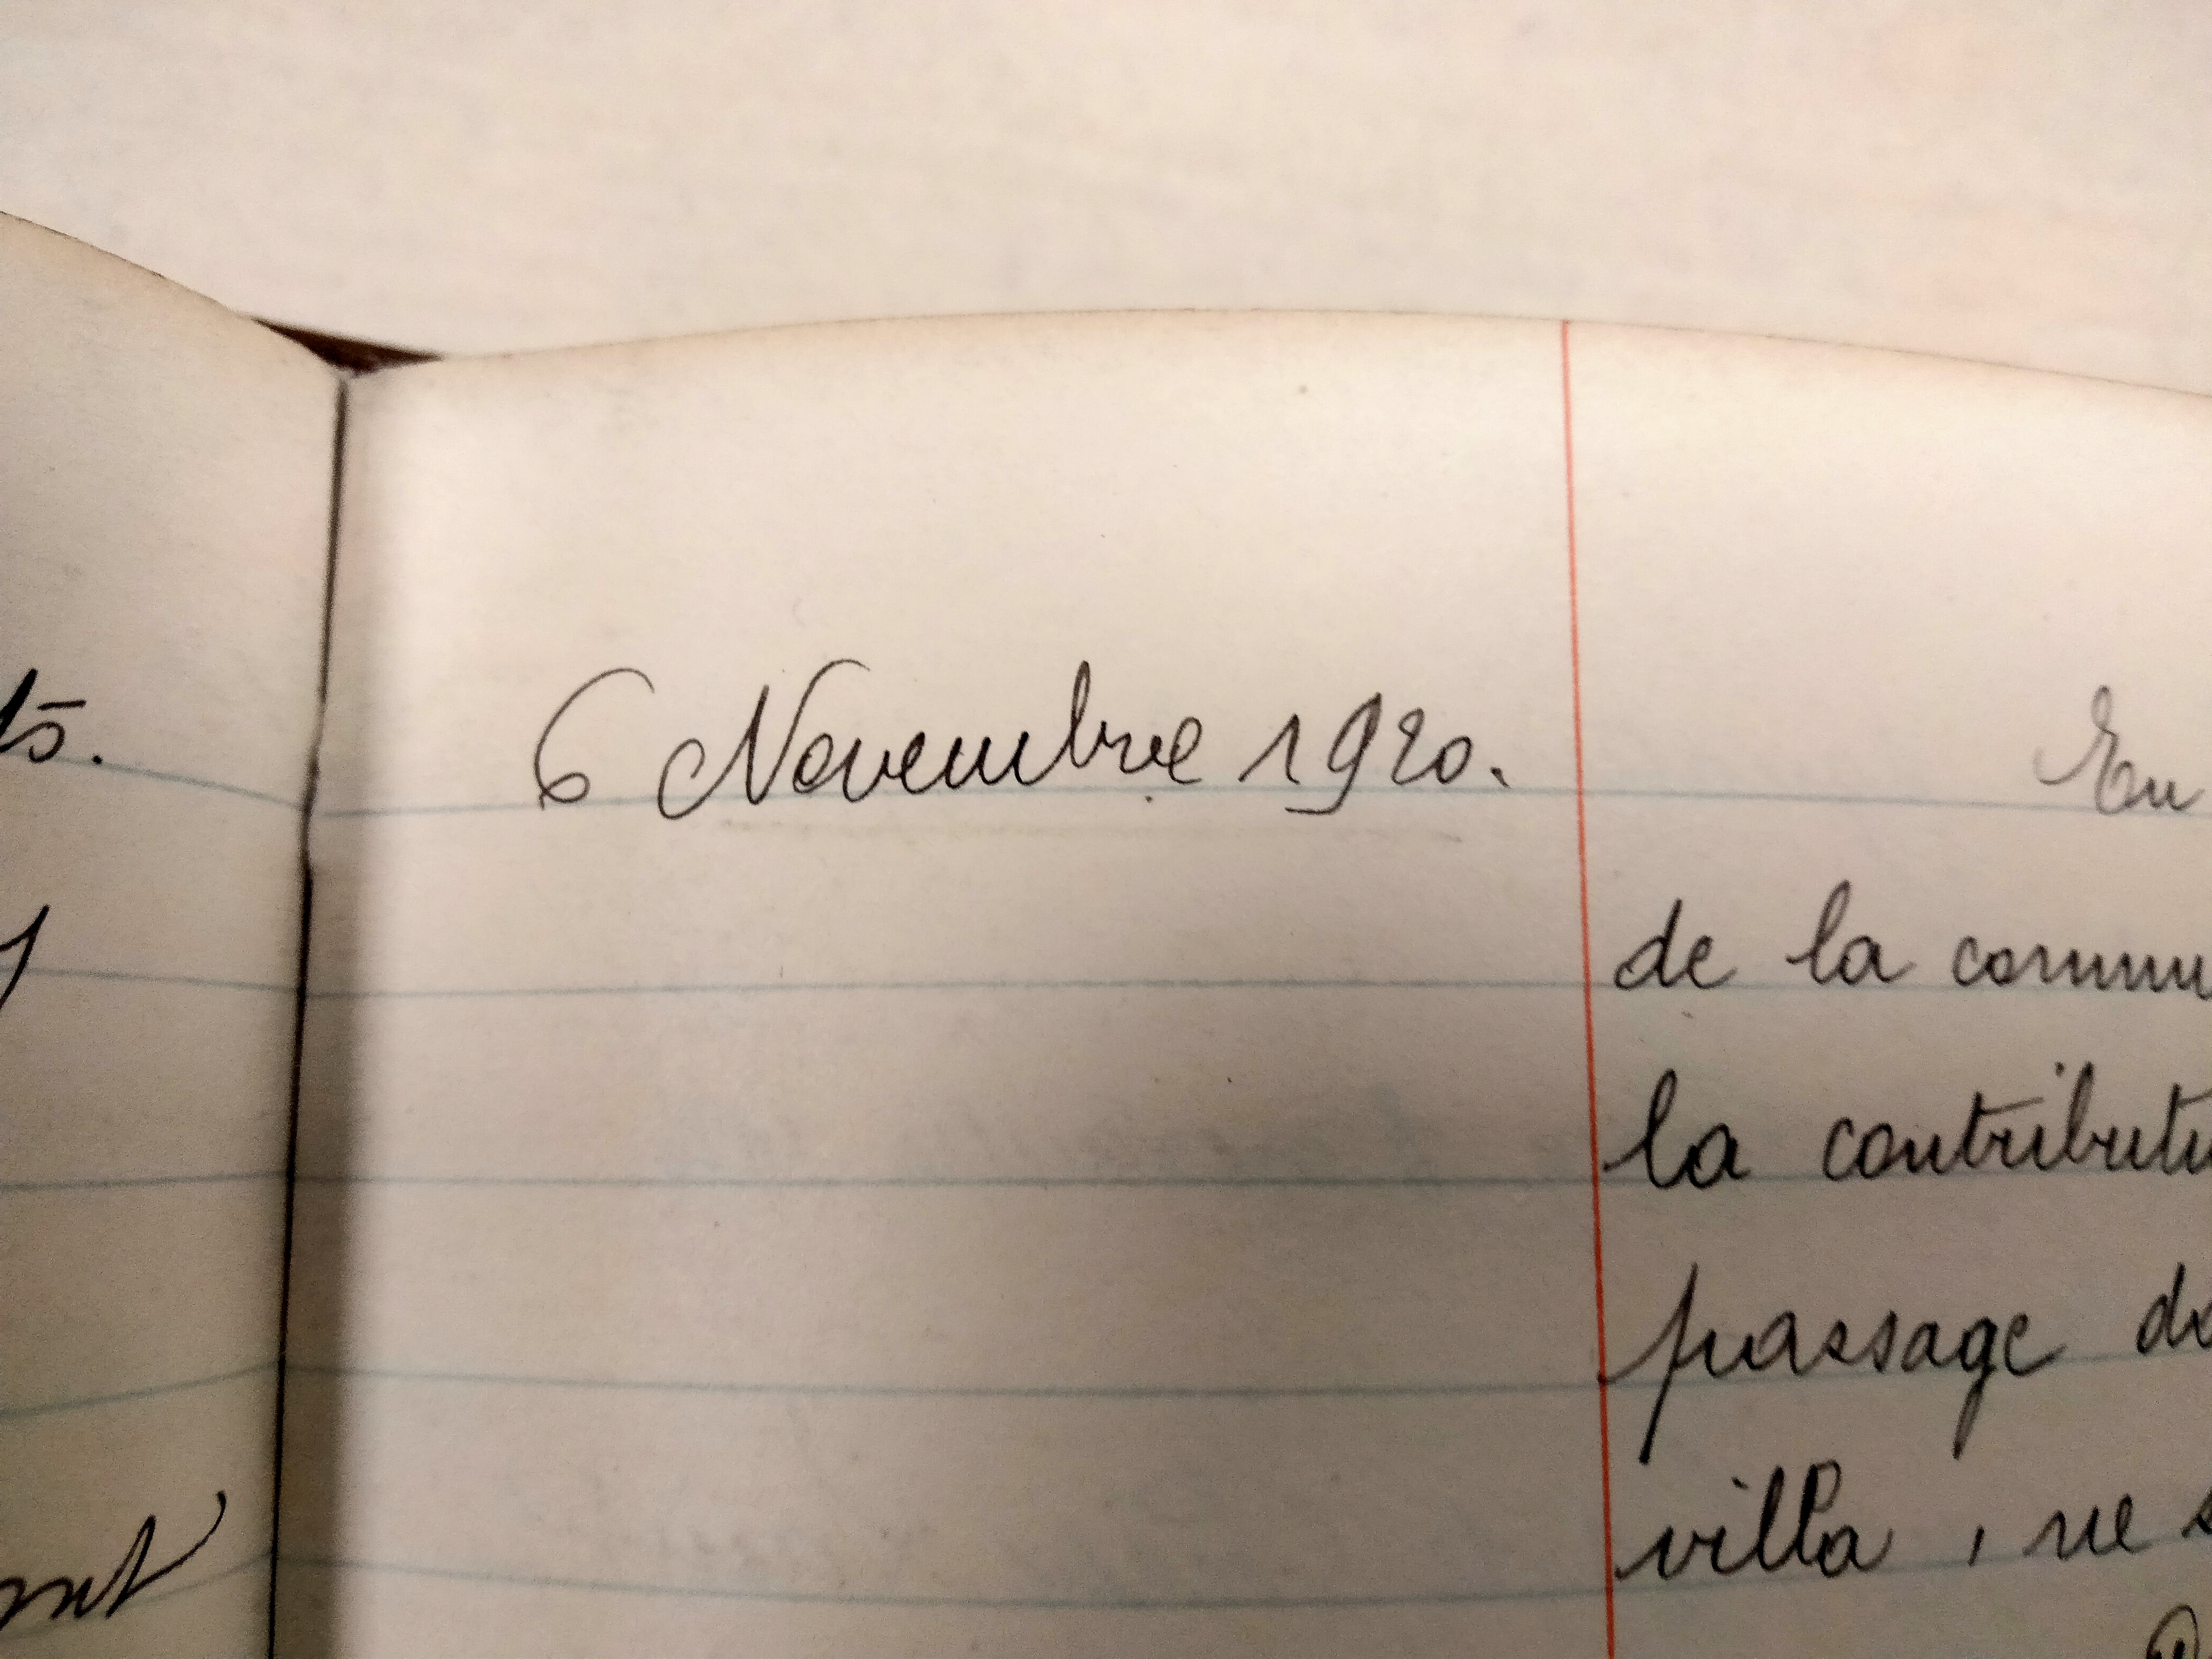 6 Novembre 1920.
En
de la commu
la contributi
passage da
villa, ne s